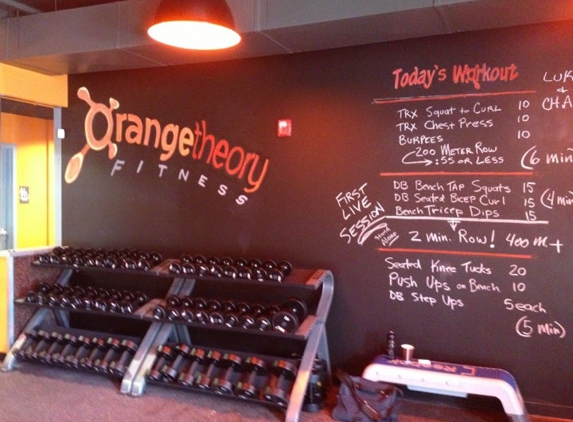 Orangetheory
FITNESS
Today's Workout
LUK
&
CHA
TRX Squat to Curl 10
TRX Chest Press 10
Burpees 10
200 Meter Row
:55 or Less
(6 min)
DB Bench Tap Squats 15
DB Seated Bicep Curl 15
Bench Tricep Dips 15
(4 min
FIRST
LIVE
SESSION
2 min. Row! 400 m +
Seated Knee Tucks 20
Push Ups on Bench 10
DB Step Ups 5 each
(5 min)